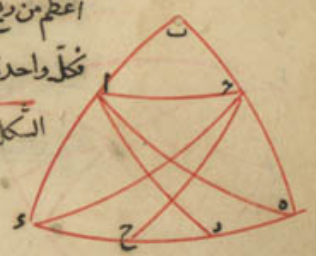 اعظم من
فكل واحد
الشكل
ب
ا
ح
ء
ح
ر
ه